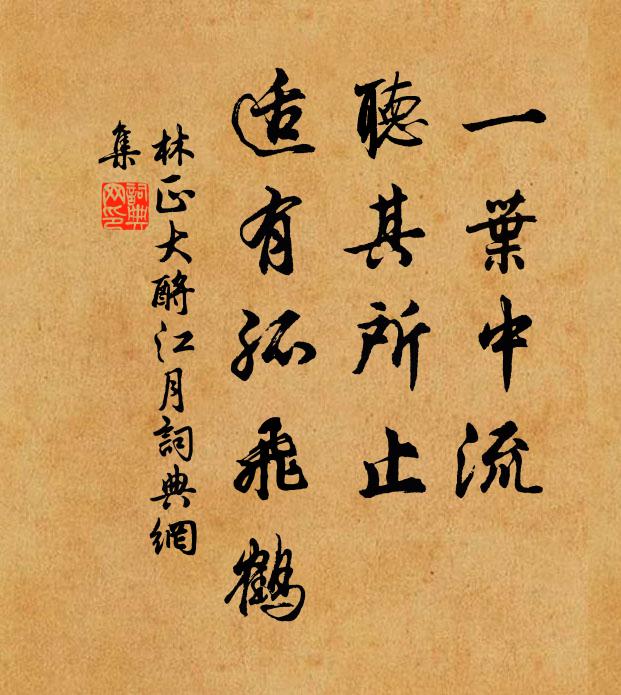 一葉中流
聽其所止
适有孤飛鶴
林正大酹江月詞典網
集
詞典
网印